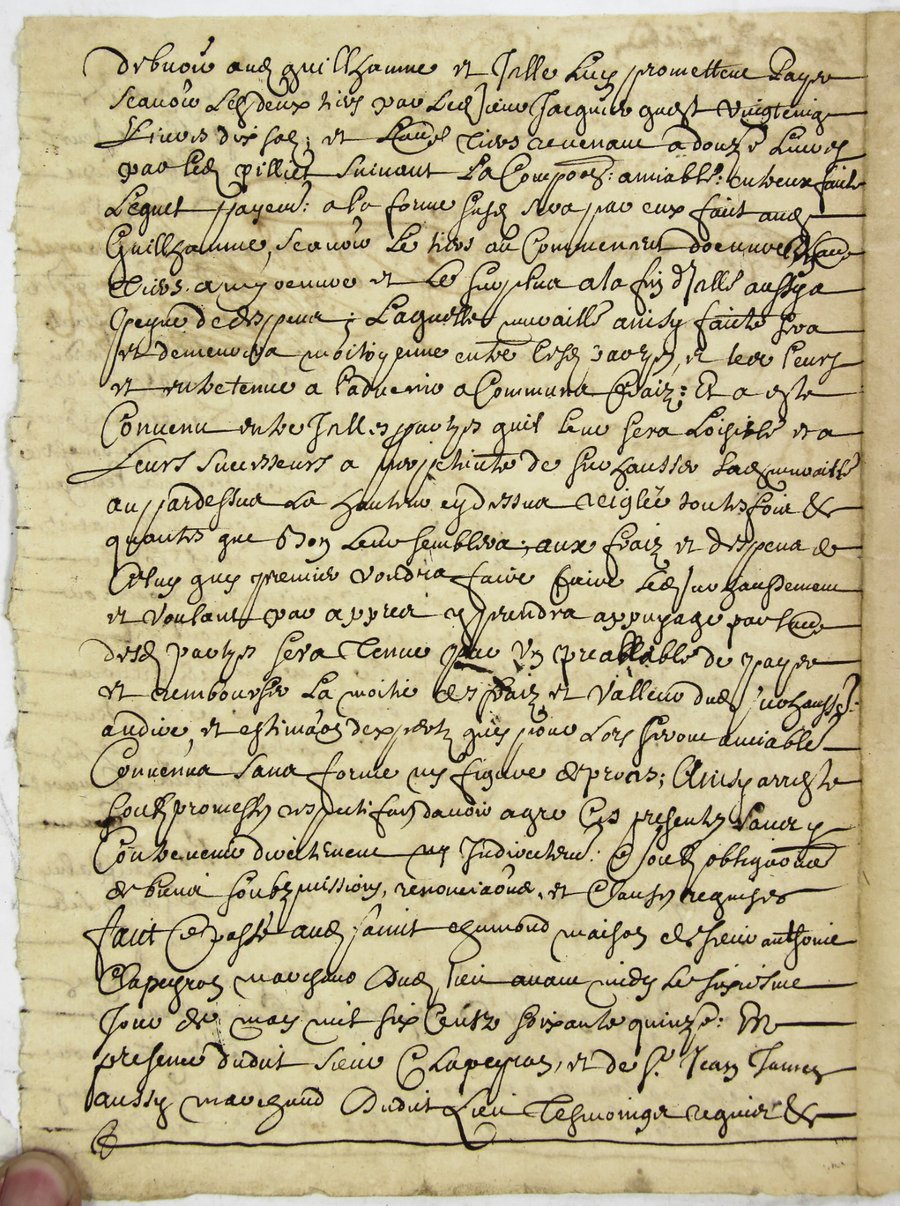 debvoir aud guilhaume et Iceulx luy promettent payer
scavoir Les deux tiers par Led sieur Jacquier quest vingt
Livres dix solz, et Laud tiers revenant a douze Livres
par led pilliet suivant La Compoon: amiable: entreux faite
Lequel payem: a la forme susd sera par eux fait aud
Guilhaume, scavoir Le tiers au Commencement doeuvre
tiers a my oeuvre et Le surplus a la fin d aussy a
peyne de despens; Laquelle muraille ainsy faicte sera
et demeurera moitoyenne entre lesd partyes, et leurs
et entretenue a ladvenir a Communs fraiz: Et a este
Convenu entre partyes quil leur sera Loisible et a
Leurs successeurs a perpetuite de surhausser lad muraille
au pardessus La hauteur cy dessus reiglée toutesfois &
quantes que bon Leur semblera, aux fraiz et despens de
Celuy quy premier voudra faire faire led surhaussement
et voulant par appuyage par
desd partyes sera tenue par un preallable de payer
et rembourser La moitie des fraiz et valleur dud surhauss:
au dire et estimaon dexpertz quy pour Lors seront amiable
Convenus sans forme ny figure de proces; Ainsy arreste
soubz promesses respectifves davoir agre Ces presentes sans y
Contrevenir directement ny Indirectem: & soubz obligaons
de biens soubzmissions, renonciaons, et Clauses requises
fait & passé aud saint chamond maison de sieur anthoine
Clapeyron marchand dud lieu avant midy Le sixiesme
Jour de may mil six Centz soixante quinze: En
presence dudit sieur Clapeyron, et de sr. Jean James
aussy marchand dudit Lieu tesmoings requis &